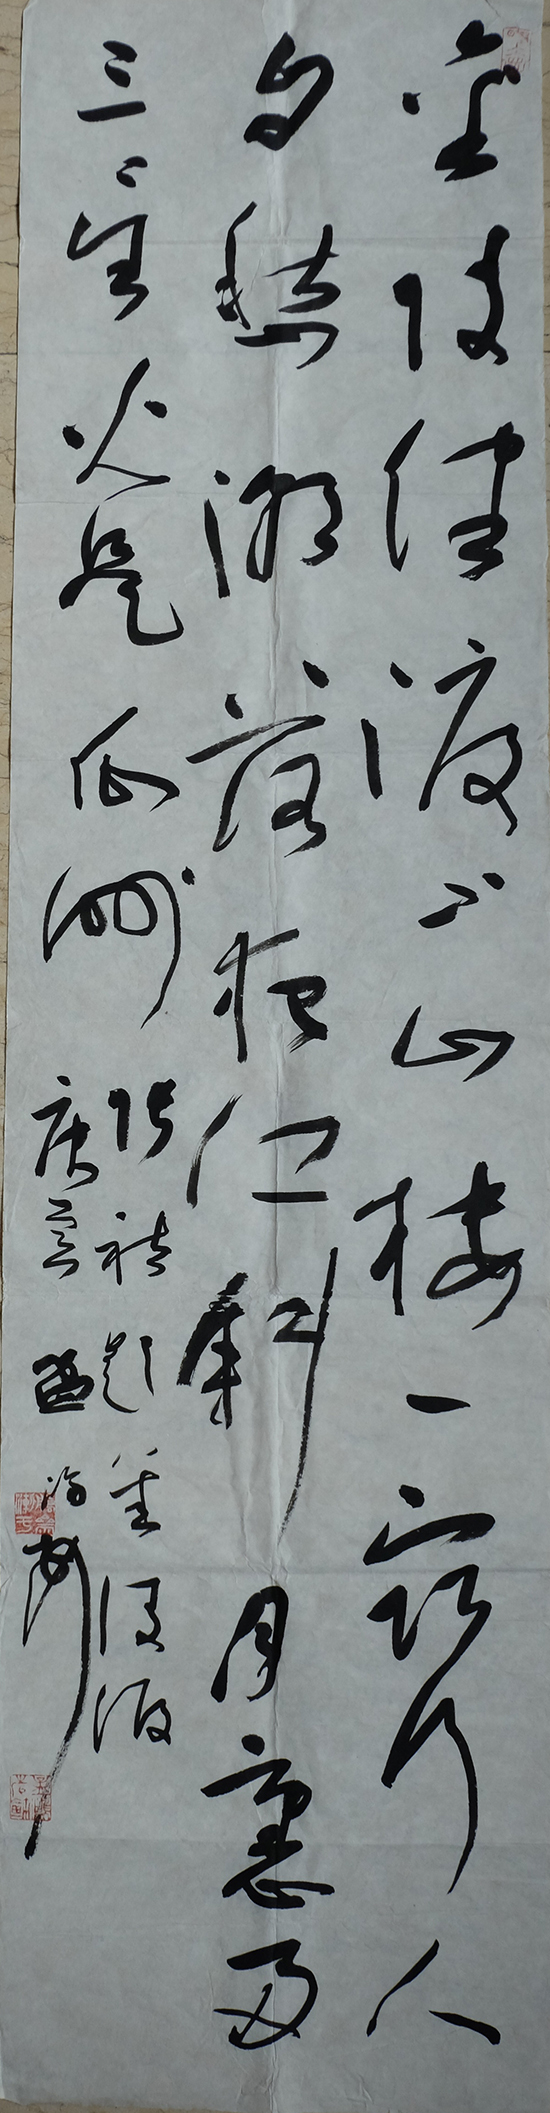 金陵津渡小山楼一宿行人
自愁潮落夜江斜月裏两
三星火是瓜洲
张祜题金陵渡
庚